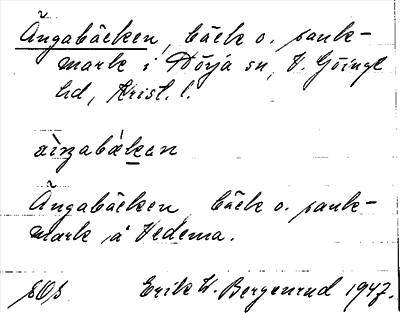 Ängabäcken, bäck o. sank-
mark i Nörja sn, V. Göinge
hd, Krist. l.
Ängabäcken bäck o. sank-
mark å Vedema.
Erik W. Bergenrud 1947.